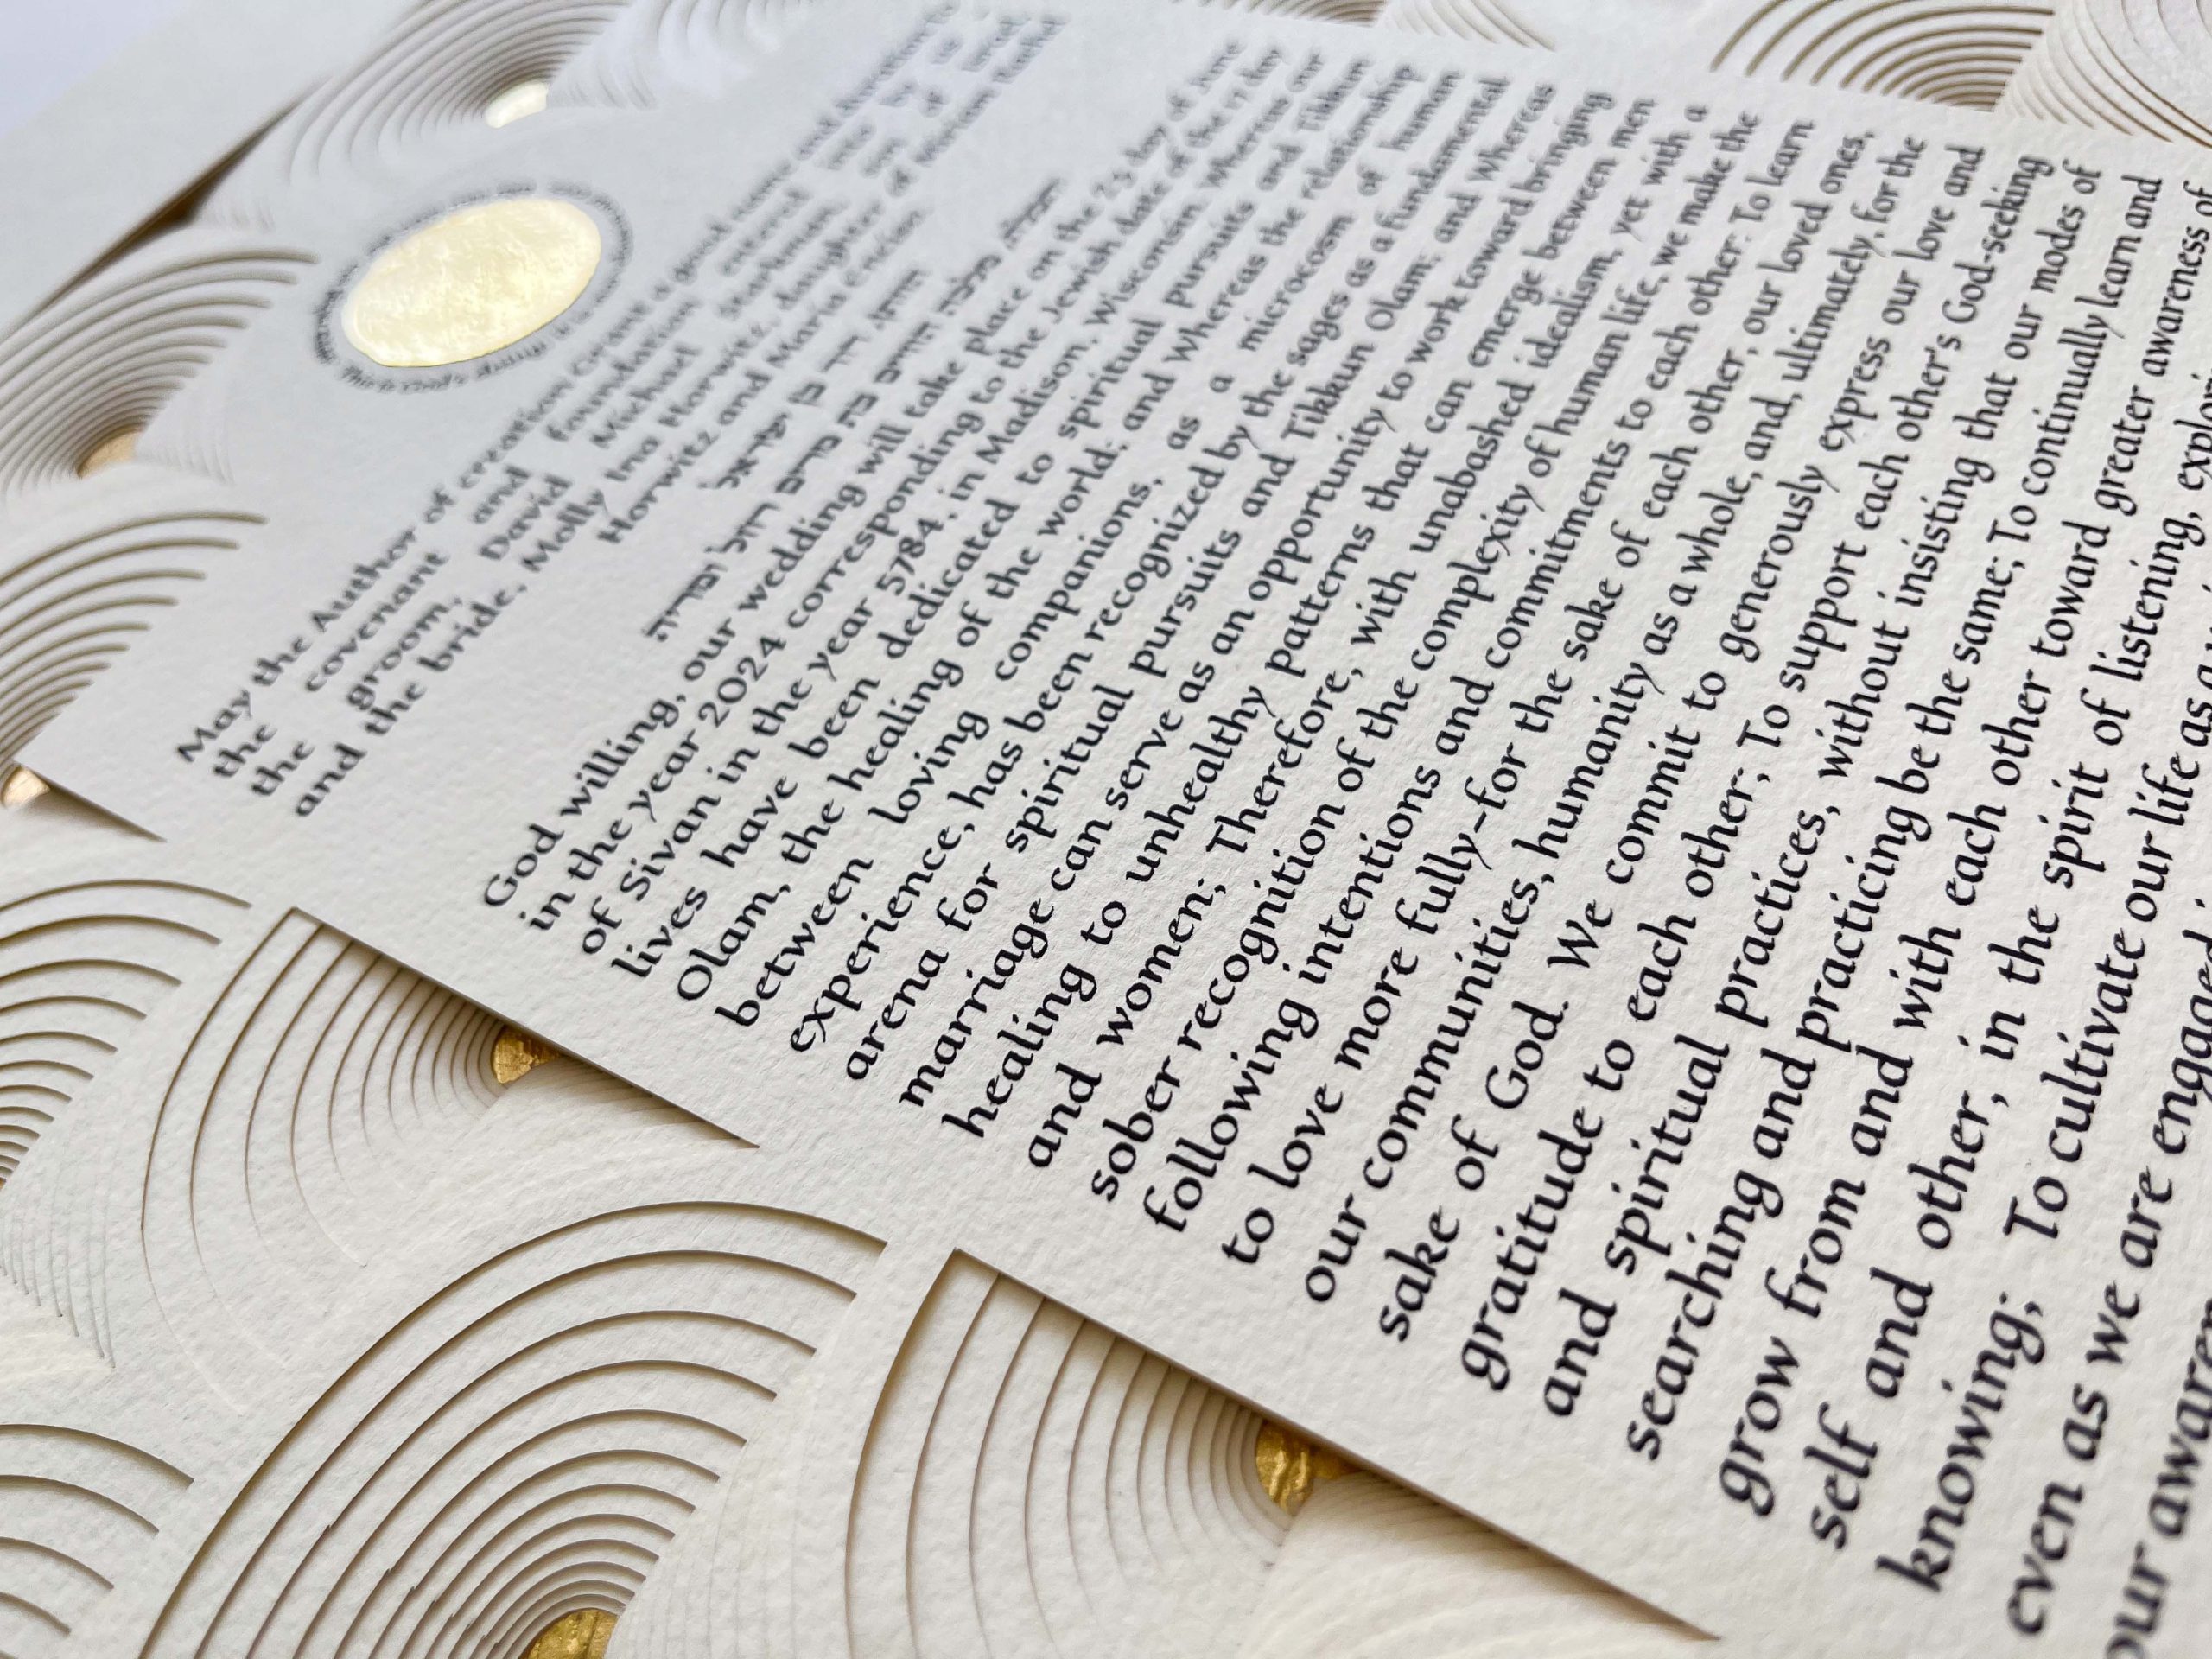 This is God's doing; it is
May the Author of creation grant a good name and
the covenant and foundation entered into by
the groom, David Michael Startman, son of
and the bride, Molly Ina Horwitz, daughter of Miriam Rachel
Horwitz and Maria Encior.
חתן, דוד בן ישראל
הכלה, מלכה חודיש בת מרים רחל ומריה
God willing, our wedding will take place on the 23 day of June
in the year 2024 corresponding to the Jewish date of the 17 day
of Sivan in the year 5784, in Madison, Wisconsin. Whereas our
lives have been dedicated to spiritual pursuits and Tikkun
Olam, the healing of the world; and Whereas the relationship
between loving companions, as a microcosm of human
experience, has been recognized by the sages as a fundamental
arena for spiritual pursuits and Tikkun Olam; and Whereas
marriage can serve as an opportunity to work toward bringing
healing to unhealthy patterns that can emerge between men
and women; Therefore, with unabashed idealism, yet with a
sober recognition of the complexity of human life, we make the
following intentions and commitments to each other: To learn
to love more fully–for the sake of each other, our loved ones,
our communities, humanity as a whole, and, ultimately, for the
sake of God. We commit to generously express our love and
gratitude to each other; To support each other's God-seeking
and spiritual practices, without insisting that our modes of
searching and practicing be the same; To continually learn and
grow from and with each other toward greater awareness of
self and other, in the spirit of listening,
knowing; To cultivate our life as a
even as we are engaged
our